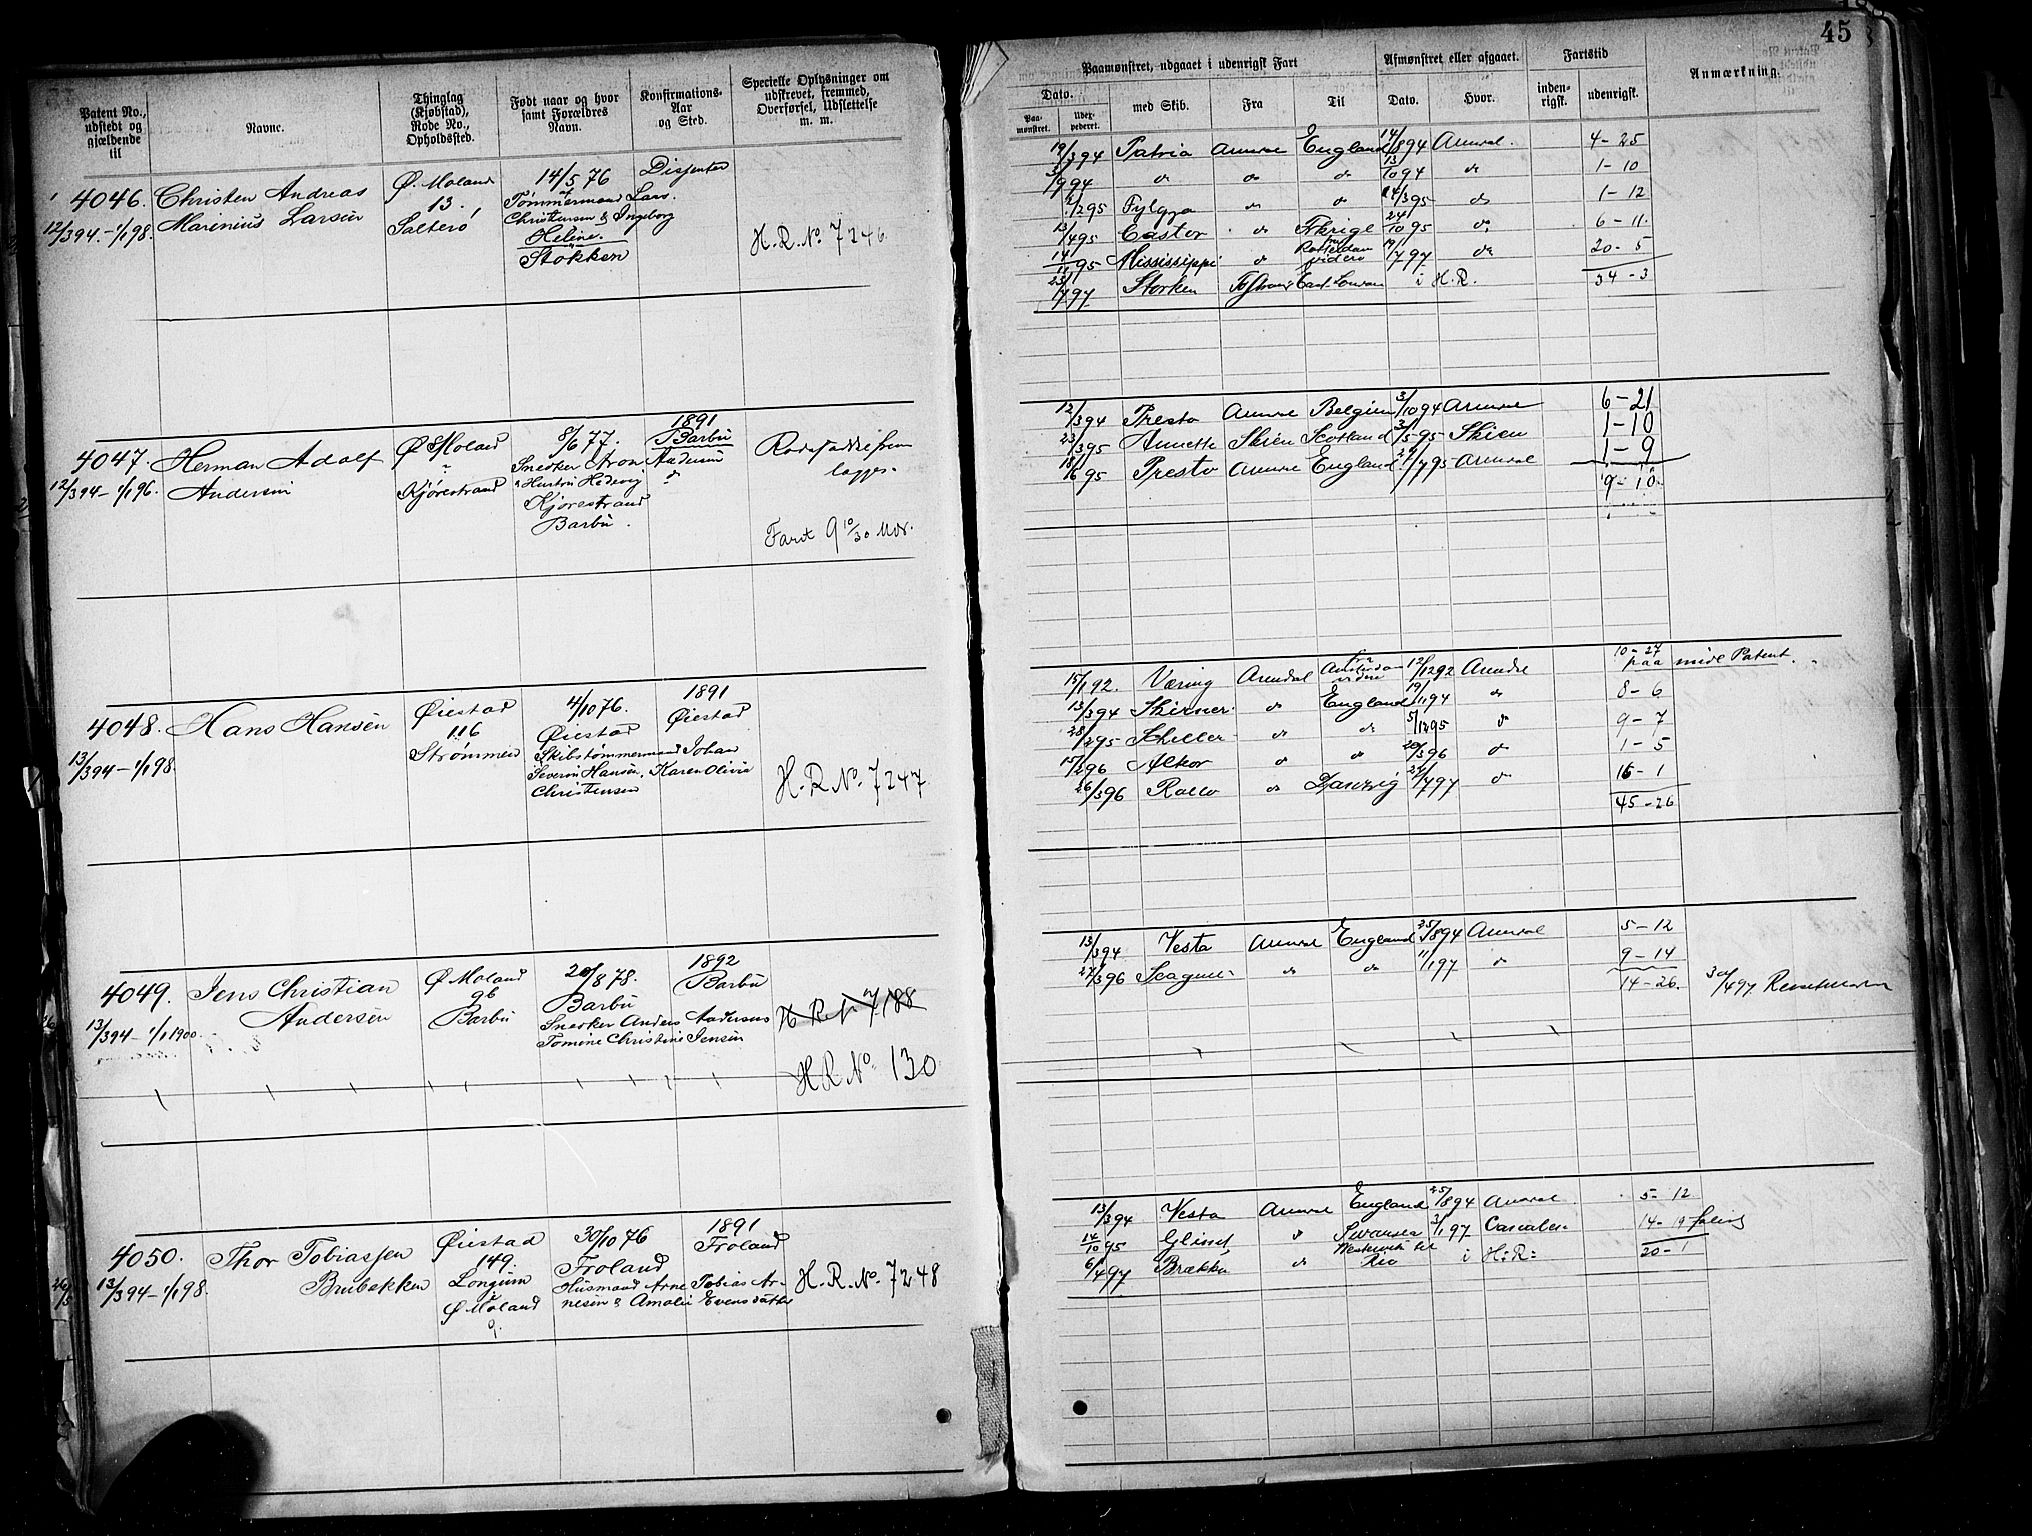 45
Patent No., udstedt og gjældende til
Navne.
Thinglag (Kjøbstad), Rode No., Opholdssted.
Født naar og hvor samt Forældres Navn.
Konfirmations-Aar og Sted.
Specielle Oplysninger om udskrevet, fremmed, Overførsel, Udslettelse m. m.
Paamønstret, udgaaet i udenrigsk Fart
Dato.
Paa-mønstret.
Udex-pederet.
med Skib.
Fra
Til
Afmønstret eller afgaaet.
Dato.
Hvor.
Fartstid
inden-rigsk.
udenrigsk.
Anmærkning.
4046.
12/3 94 – 1/1 98.
Christen Andreas
Marinius Larsen
Ø. Moland
13.
Salterø
14/5 76
Tømmermand Lars
Christensen & Ingeborg
Heline.
Stokken
Dissenter
H. R. No. 7246.
19/3 94 Patria Arendal England 14/8 94 Arendal. 4 - 25
3/9 94 do do do 13/10 94 do 1 - 10
2/2 95 Fylgja do do 14/3 95 do 1 - 12
13/4 95 Castor do Frkrige 24/10 95 do 6 - 11
14/11 95 Mississippi do Rotterdam videre 19/7 97 do 20 - 5
23/7 97 Storken East London i H.R. 34 - 3
4047.
12/3 94 – 1/1 96.
Herman Adolf
Andersen
Ø Moland
Kjørestrand
8/6 77.
Snedker Aron Andersen
& Hustru Hedevig
Kjørestrand
Barbu.
1891
Barbu
Fart 9 10/30 Mdr.
12/3 94 Presto Arendal Belgien 3/10 94 Arendal 6 - 21
23/3 95 Annette Skien Scotland 3/5 95 Skien 1 - 10
18/6 95 Presto Arendal England 27/7 95 Arendal 1 - 9
9 - 10
4048.
13/3 94 – 1/1 98.
Hans Hansen
Øiestad
116
Strømmen
4/10 76.
Øiestad
Skibstømmermand Johan
Severin Hansen, Karen Olivia
Christensen
1891
Øiestad
H. R. No. 7247
15/1 92. Væring Arendal Amsterdam videre 12/12 92 Arendal 10 - 27 paa midl Patent.
13/3 94 Skirner do England 19/11 94 do 8 - 6
28/2 95 Schiller do do 5/12 95 do 9 - 7
15/2 96 Alkor do do 20/3 96 do 1 - 5
26/3 96 Rollo do Danzig 27/7 97 do 16 - 1
45 - 26
4049.
13/3 94 – 1/1 1900.
Jens Christian
Andersen
Ø Moland
96
Barbu
20/8 78.
Barbu
Snedker Anders Andersens
Tomine Christine Jensen
1892
Barbu
H R No 7188
H. R. No. 130
13/3 94 Vesta Arendal England 25/8 94 Arendal 5 - 12
27/3 96 do do 11/1 97 do 9 - 14
14 - 26.
30/4 97
4050.
13/3 94 – 1/1 98.
Thor Tobiassen
Brubakken
Øiestad
149.
Longum
Ø Moland
9.
30/10 76
Froland
Husmand Arne Tobias Ar-
nesen & Amalie Evensdatter
1891
Froland
H. R. No. 7248
13/3 94 Vesta Arendal England 25/8 94 Arendal 5 - 12
14/10 95 do Swansea 3/1 97 14 - 19
6/4 97 Brække do Rio i H: R: 20 - 1